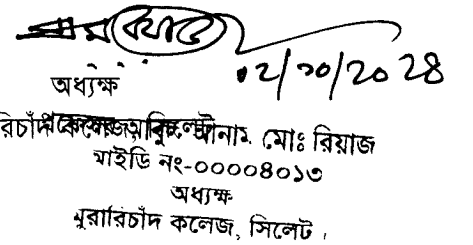 ০২/১০/২০২৪
অধ্যক্ষ
রিচাঁদ আনাম মোঃ রিয়াজ
আইডি নং-০০০০৪০১৩
অধ্যক্ষ
মুরারিচাঁদ কলেজ, সিলেট।